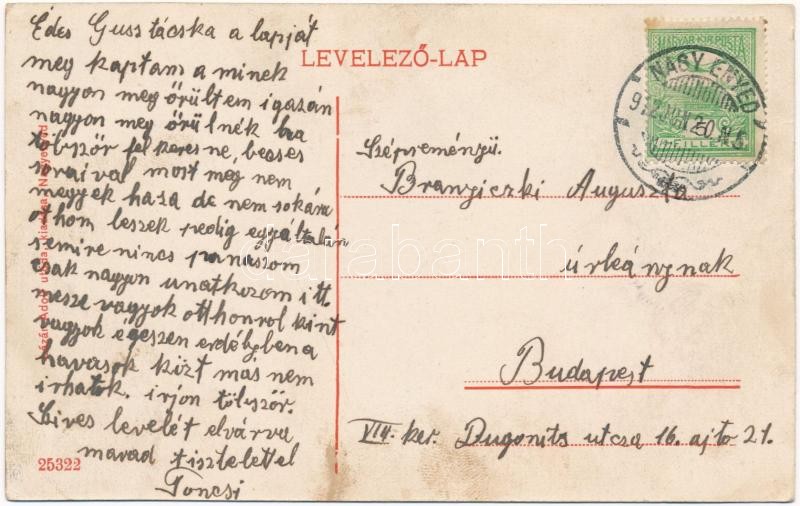 LEVELEZŐ-LAP
Édes Gusstácska a lapját
meg kaptam a minek
nagyon meg őrültem igazán
nagyon meg őrülnék ha
többször fel keresne, becses
soraival most meg nem
megyek haza de nem sokára
othom leszek pedig egyáltalán
semire nincs panaszom
csak nagyon unatkozom itt.
mesze vagyok otthonrol kint
vagyok égeszen erdélyben a
havasok közt más nem
irhatok. irjon többször.
Szives levelét elvárva
marad tisztelettel
Toncsi
25322
MAGYAR KIR. POSTA
NAGY ENYED
FILLÉR
Szépreményü.
Brangiczki Auguszta
úrleánynak
Budapest
VIII-ker. Dugonits utcsa 16. ajto 21.
darabanth